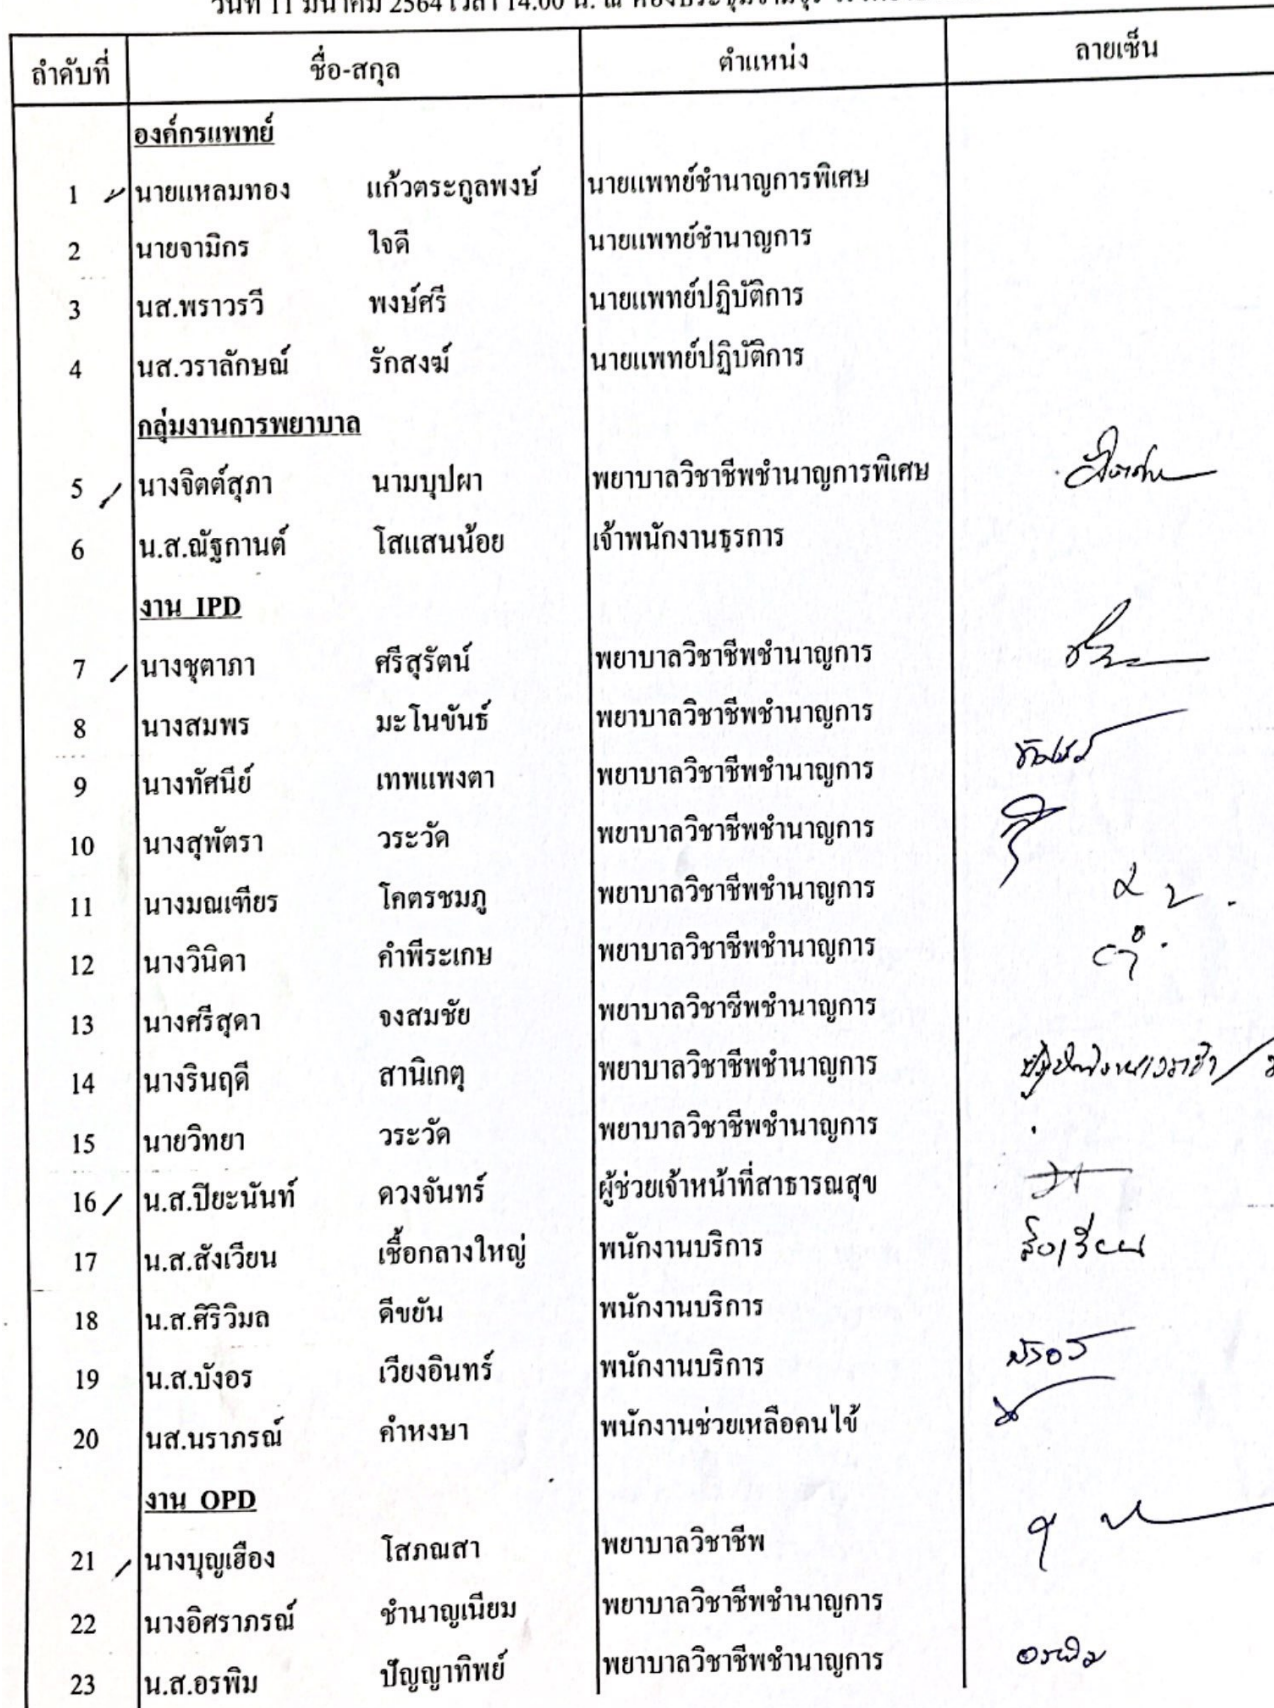 วันที่ 11 มีนาคม 2564 เวลา 14.00 น. ณ ห้องประชุม
ลำดับที่ ชื่อ-สกุล ตำแหน่ง ลายเซ็น
องค์กรแพทย์
1 นายแหลมทอง แก้วตระกูลพงษ์ นายแพทย์ชำนาญการพิเศษ
2 นายจามิกร ใจดี นายแพทย์ชำนาญการ
3 นส.พราวรวี พงษ์ศรี นายแพทย์ปฏิบัติการ
4 นส.วราลักษณ์ รักสงฆ์ นายแพทย์ปฏิบัติการ
กลุ่มงานการพยาบาล
5 นางจิตต์สุภา นามบุปผา พยาบาลวิชาชีพชำนาญการพิเศษ
6 น.ส.ณัฐกานต์ โสแสนน้อย เจ้าพนักงานธุรการ
งาน IPD
7 นางชุตาภา ศรีสุรัตน์ พยาบาลวิชาชีพชำนาญการ
8 นางสมพร มะโนขันธ์ พยาบาลวิชาชีพชำนาญการ
9 นางทัศนีย์ เทพแพงตา พยาบาลวิชาชีพชำนาญการ
10 นางสุพัตรา วระวัด พยาบาลวิชาชีพชำนาญการ
11 นางมณเฑียร โคตรชมภู พยาบาลวิชาชีพชำนาญการ
12 นางวินิดา คำพีระเกษ พยาบาลวิชาชีพชำนาญการ
13 นางศรีสุดา จงสมชัย พยาบาลวิชาชีพชำนาญการ
14 นางรินฤดี สานิเกตุ พยาบาลวิชาชีพชำนาญการ
15 นายวิทยา วระวัด พยาบาลวิชาชีพชำนาญการ
16 น.ส.ปิยะนันท์ ดวงจันทร์ ผู้ช่วยเจ้าหน้าที่สาธารณสุข
17 น.ส.สังเวียน เชื้อกลางใหญ่ พนักงานบริการ สังเวียน
18 น.ส.ศิริวิมล ดีขยัน พนักงานบริการ
19 น.ส.บังอร เวียงอินทร์ พนักงานบริการ
20 นส.นราภรณ์ คำหงษา พนักงานช่วยเหลือคนไข้
งาน OPD
21 นางบุญเฮือง โสภณสา พยาบาลวิชาชีพ
22 นางอิศราภรณ์ ชำนาญเนียม พยาบาลวิชาชีพชำนาญการ
23 น.ส.อรพิม ปัญญาทิพย์ พยาบาลวิชาชีพชำนาญการ อรพิม